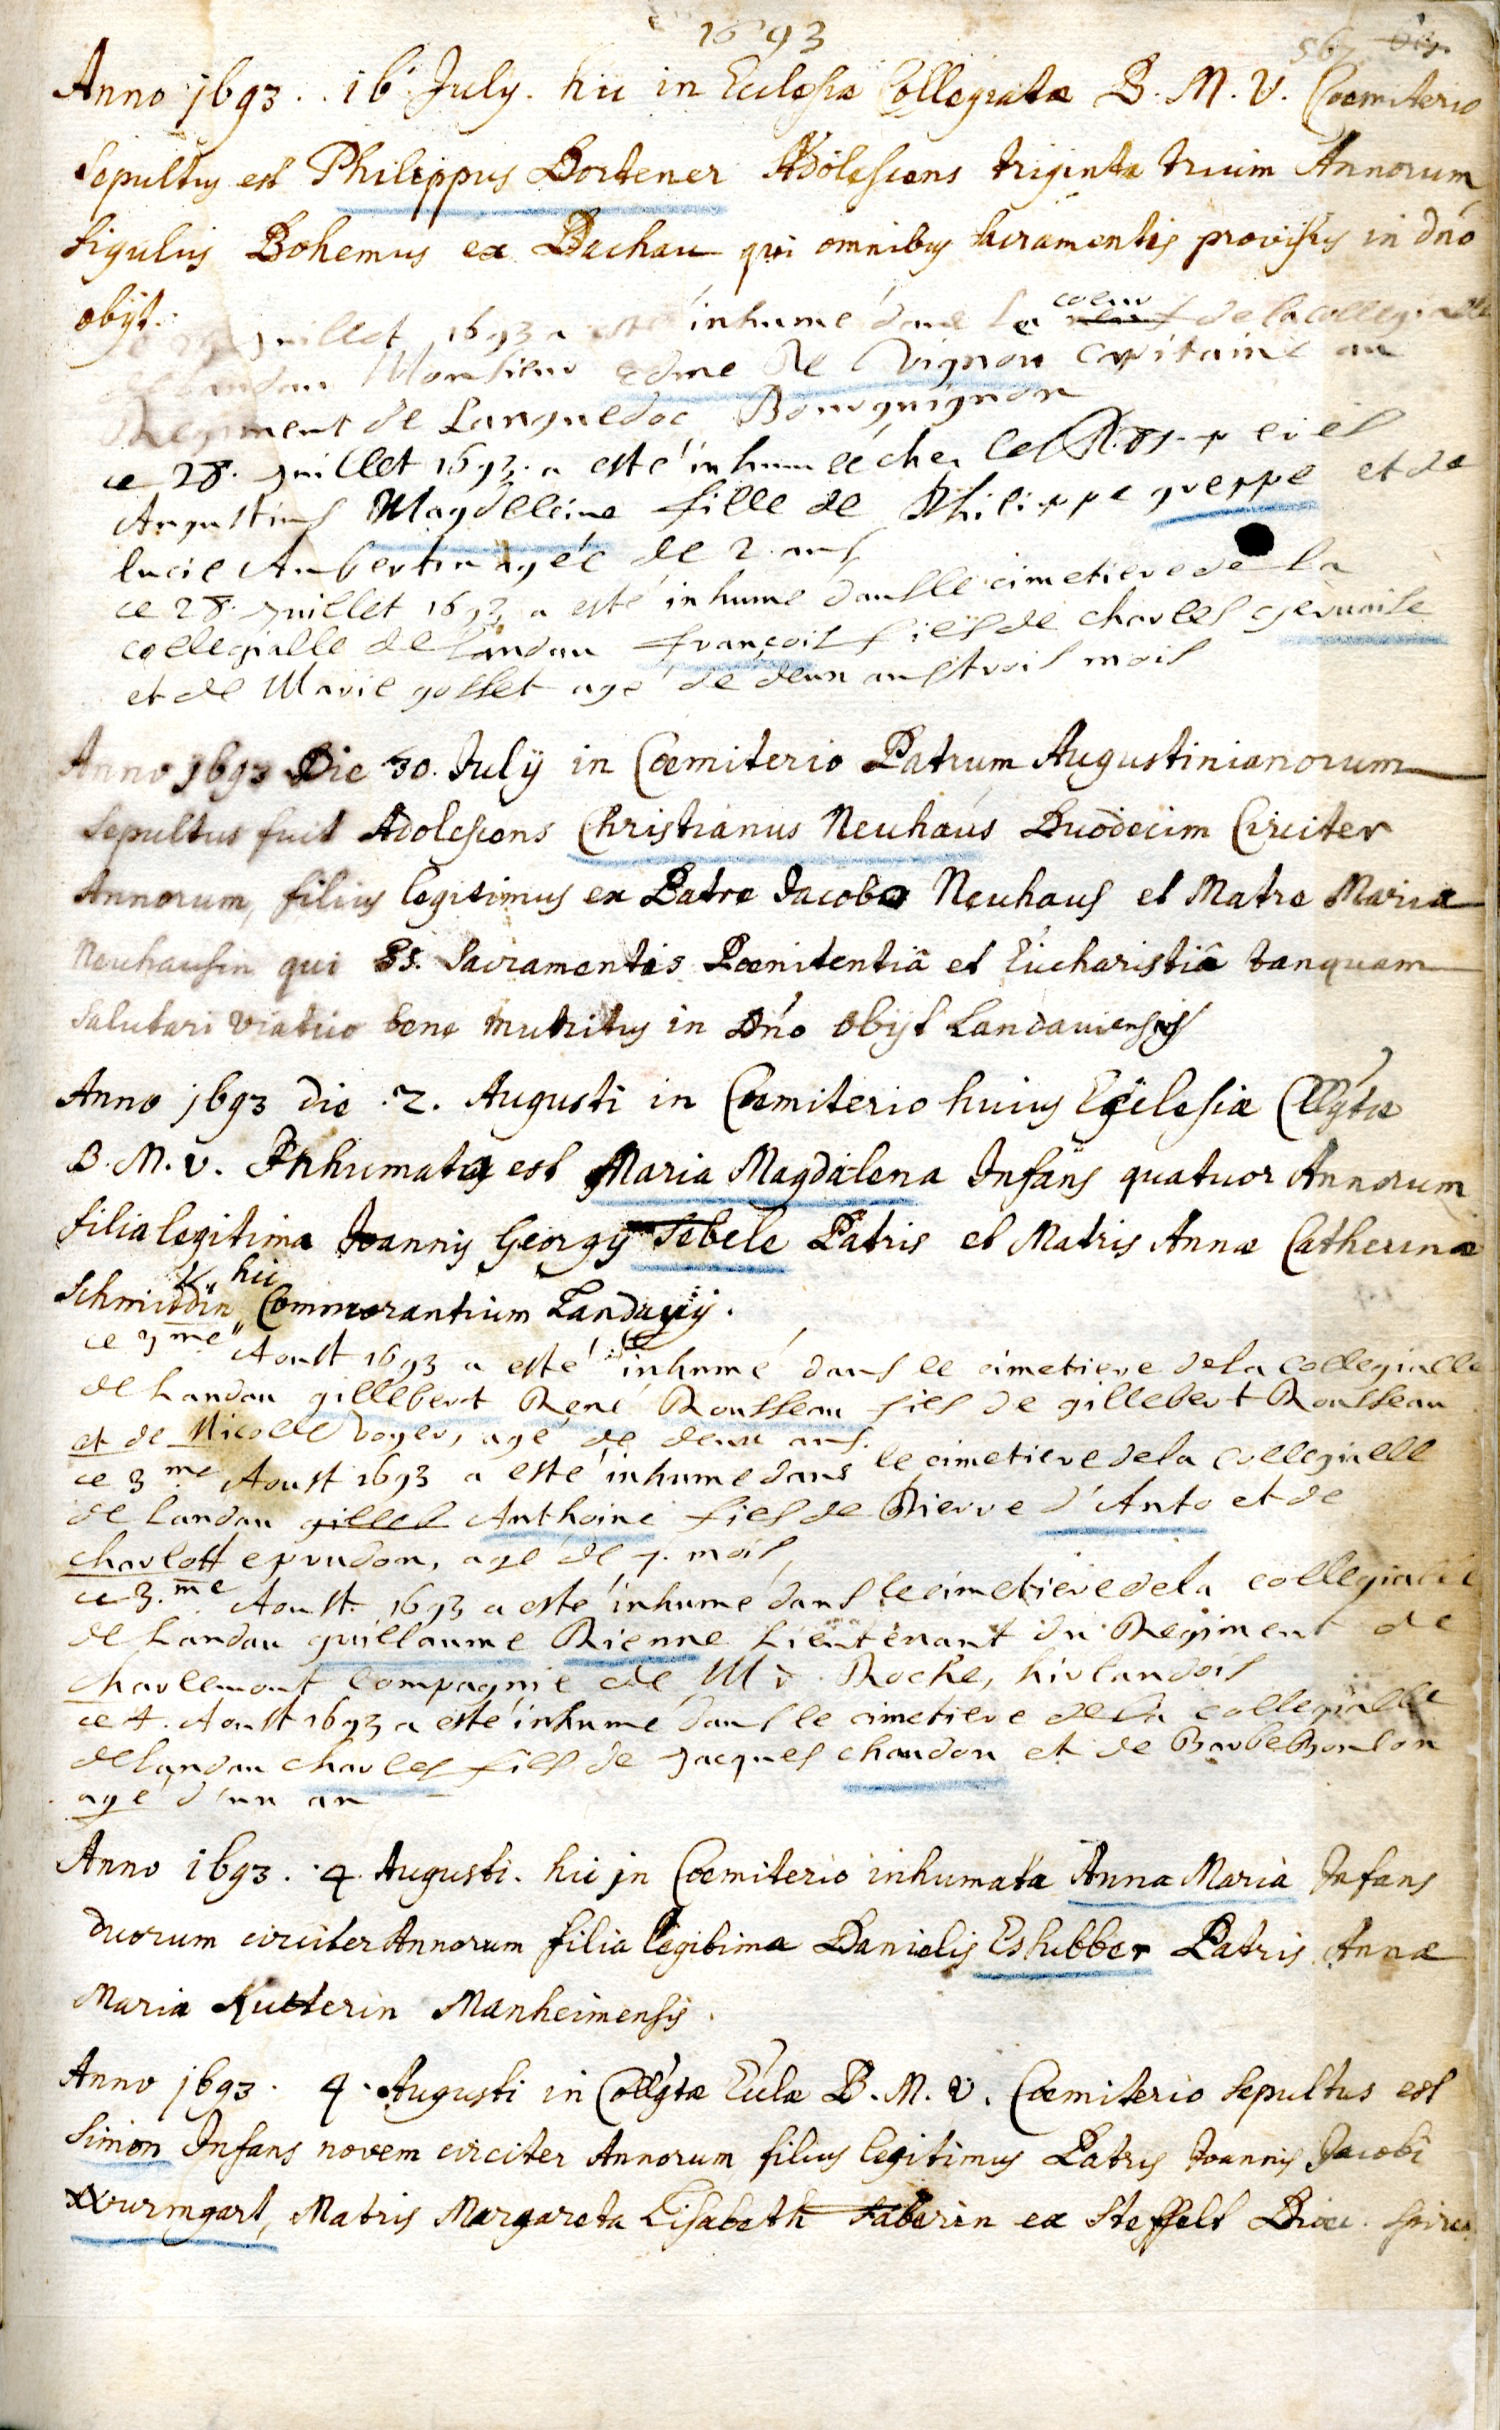 1693
567
Anno 1693. . 16 July. hic in Ecclesiæ Collegiatæ B. M. V. Coemiterio
Sepultus est Philippus Dortener Adolescens triginta trium Annorum
figulus Bohemus ex Dachau qui omnibus sacramentis provisus in dno
obijt.
juillet 1693 a esté inhumé dans le coeur de la collegialle
de landau Monsieur edme de Vignon capitaine au
Regiment de Languedoc Bourguignon
ce 28. juillet 1693. a esté inhumée chez les R.
Augustins Magdeleine fille de Philippe gueppe et de
lucie Aubertin agée de 2. ans
ce 28. juillet 1693 a esté inhumé dans le cimetiere de la
collegialle de landau françois fils de charles gervaise
et de Marie gosset agé de deux ans trois mois
Anno 1693 Die 30. Julij in Coemiterio Patrum Augustinianorum
Sepultus fuit Adolescens Christianus Neuhaus Duodecim Circiter
Annorum, filius legitimus ex Patre Jacobo Neuhaus et Matre Maria
Neuhausin qui SS. Sacramentis Poenitentiâ et Eucharistiâ tanquam
Salutari viatico bene nutritus in Dno obijt Landaviensis
Anno 1693 die . 2. Augusti in Coemiterio huius Ecclesiæ Collgtæ
B. M. V. Inhumata est Maria Magdalena Infans quatuor Annorum
filia legitima Joannis Georgij Sebele Patris et Matris Annæ Catherinæ
hic
Schmiddin Commorantium Landavij.
ce 3me Aoust 1693 a esté inhumé dans le cimetiere de la collegialle
de landau gillebert René Rousseau fils de gillebert Rousseau
et de Nicolle voyer, agé de deux ans.
ce 3.me Aoust 1693 a esté inhumé dans le cimetiere de la collegialle
de landau gilles Anthoine fils de Pierre d'Anto et de
charlott eprudon, agé de 7. mois,
ce 3.me Aoust. 1693 a esté inhumé dans le cimetiere de la collegialle
de landau guillaume Rienne Lieutenant du Regiment de
charlemont compagnie de Mr. Roche, hirlandois
ce 4. Aoust 1693 a esté inhumé dans le cimetiere de la collegialle
de landau charles fils de jacques chaudon et de Barbe Boulon
agé d'un an
Anno 1693. . 4. Augusti. hic in Coemiterio inhumata Anna Maria Infans
duorum circiter Annorum filia legitima Danielis Eshubber Patris Annæ
Maria Kutterin Manheimensis.
Anno 1693. 4. Augusti in Collgtæ Eclæ B. M. V. Coemiterio sepultus est
Simon Infans novem circiter Annorum filius legitimus Patris Joannis Jacobi
Wurmgart, Matris Margareta Elisabeth faberin ex Steffelt Dioec. Spire